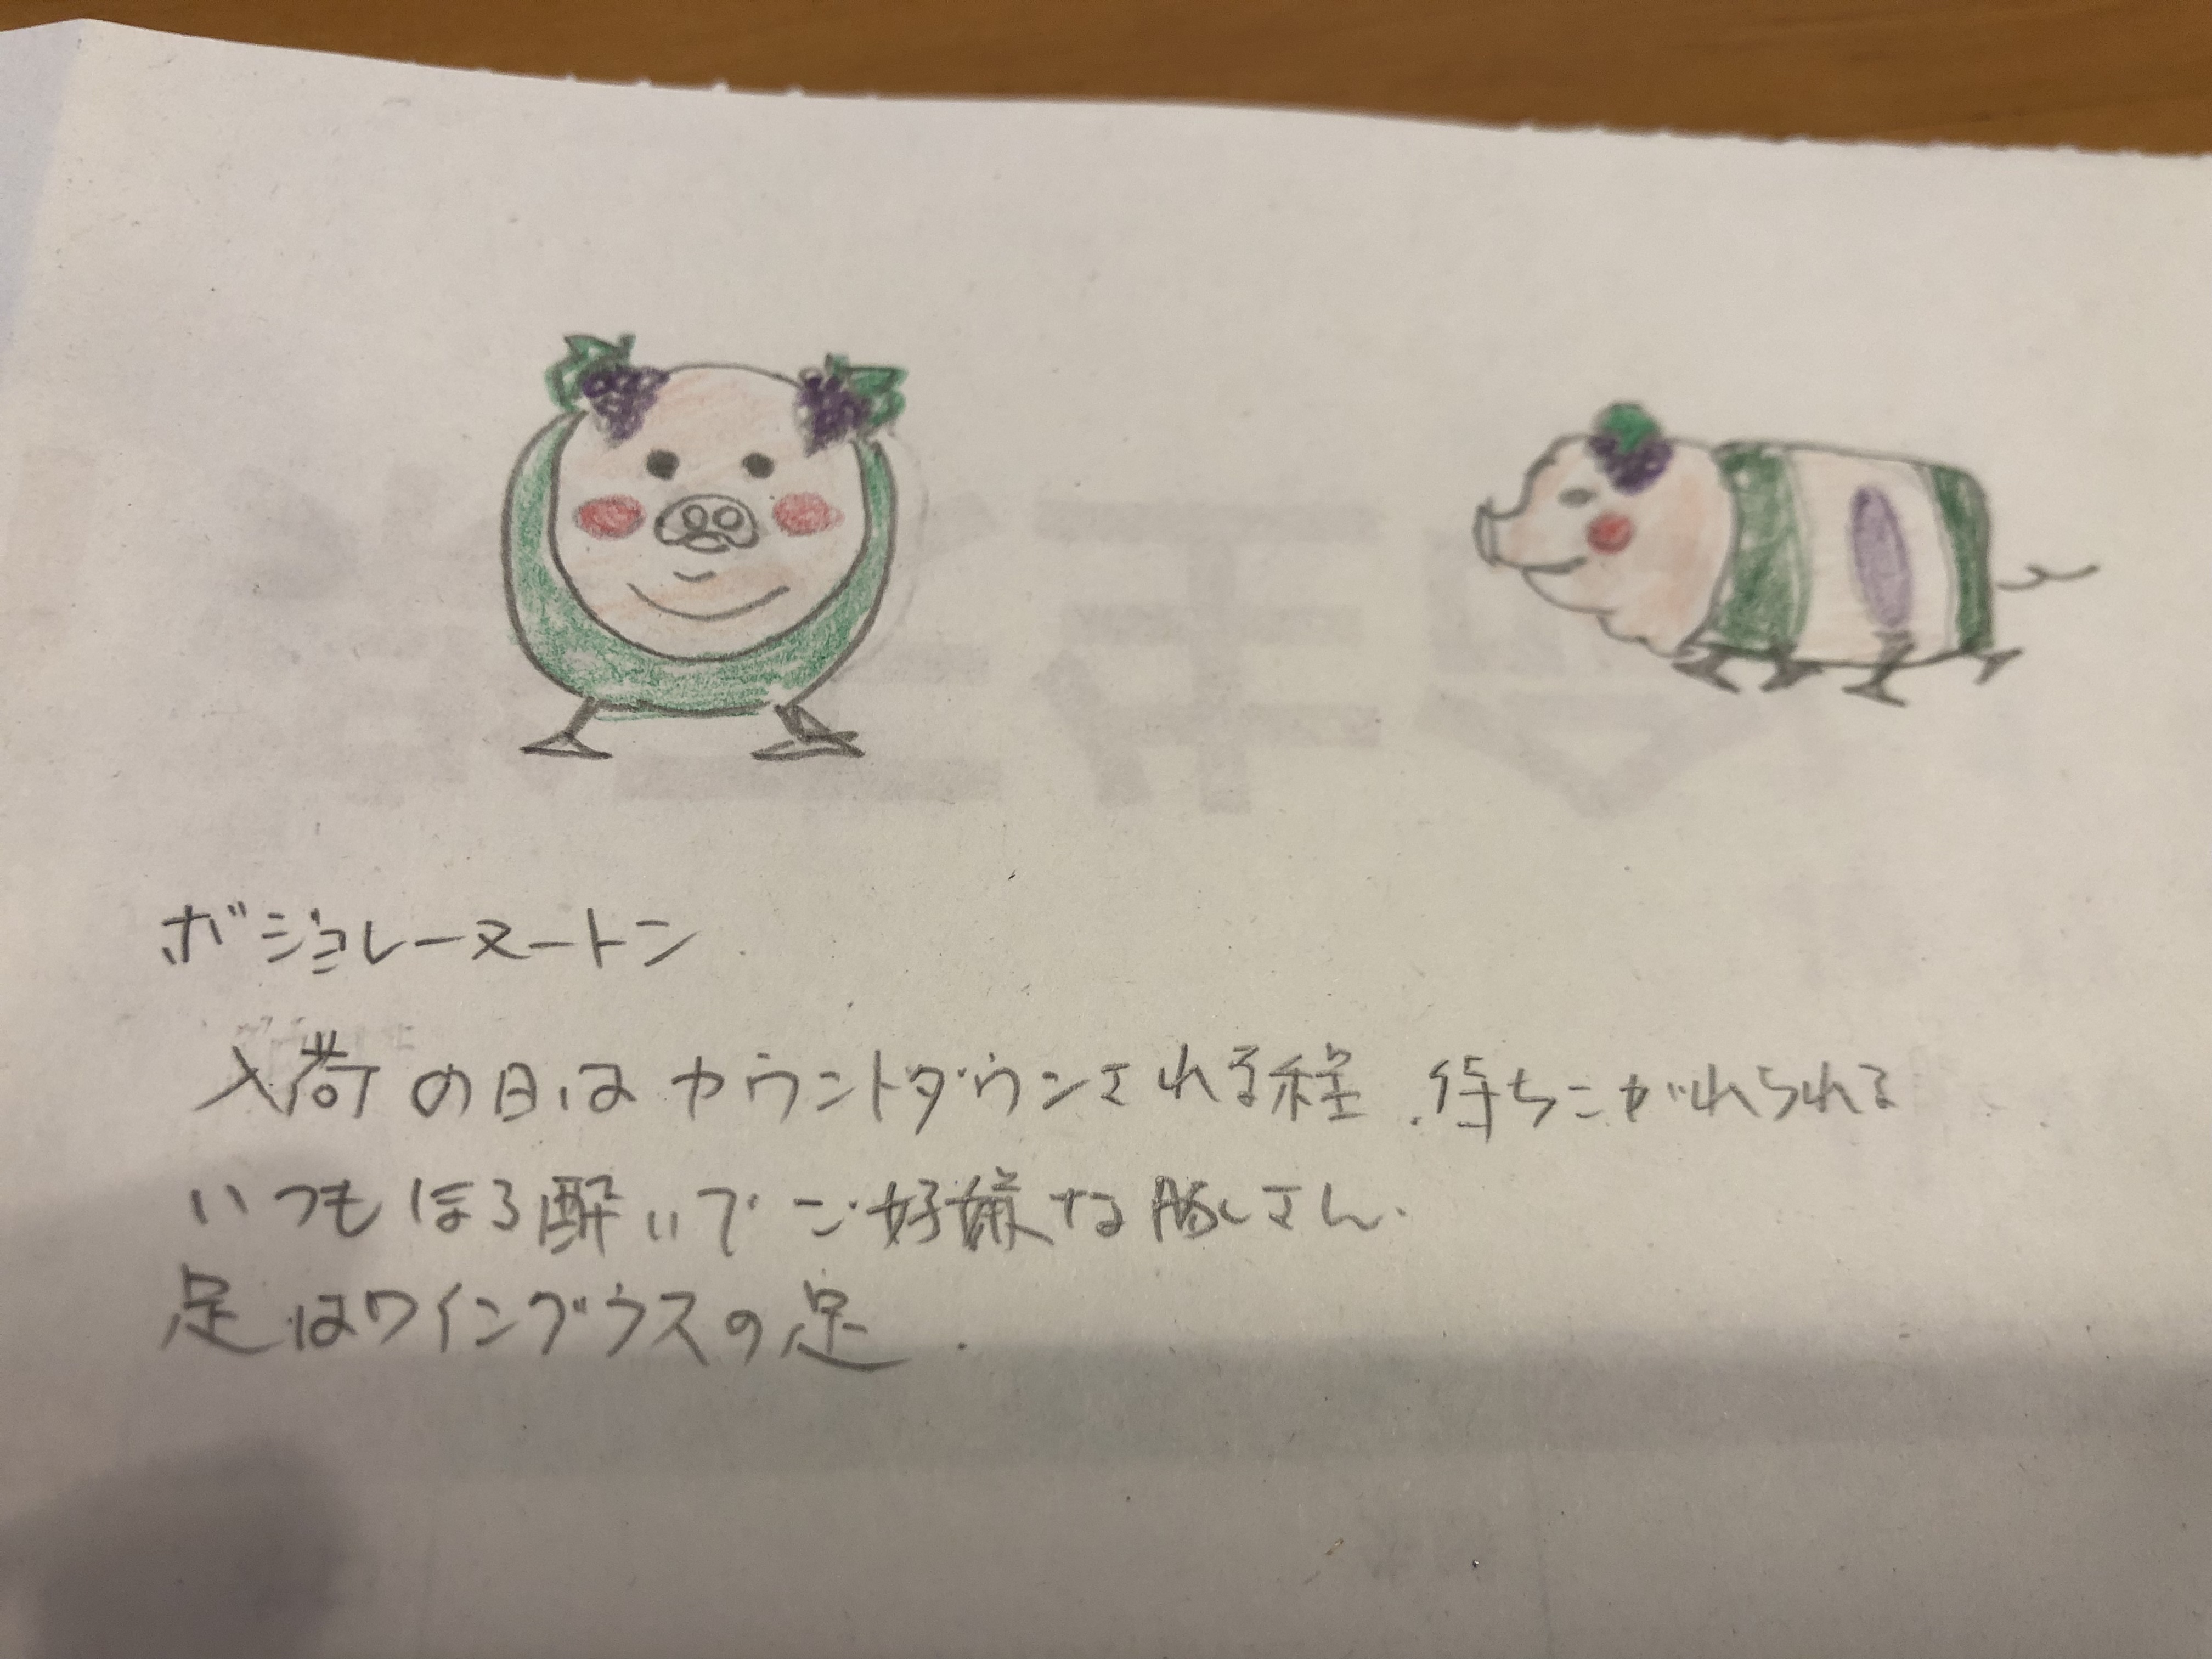 ボジョレーヌートン
入荷の日はカウントダウンされる程、待ちこがれられる
いつもほろ酔いでご好嫌な豚さん.
足はワイングラスの足.